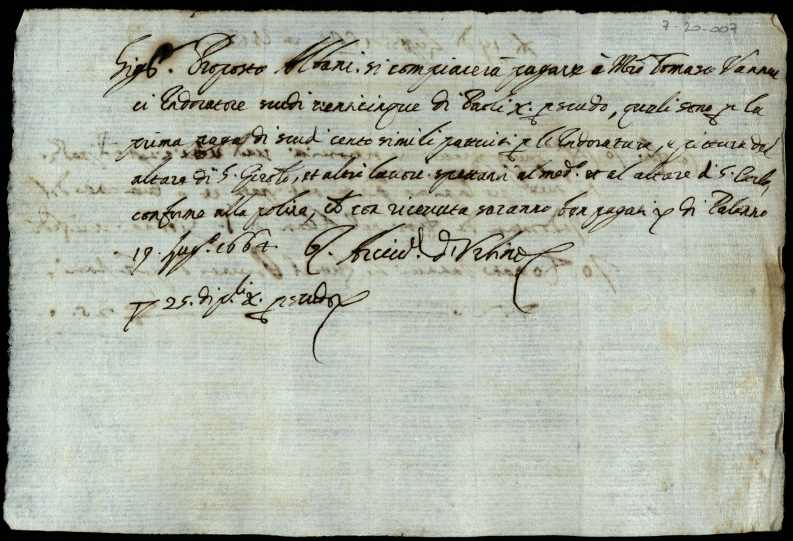 7-20-007
Sig.r Proposto Albani. si compiacerà pagare à Mro Tomaso Vannu
ci Indoratore scudi venticinque di Paoli X. p scudo, quali sono p la
prima paga di scudi cento simili patuiti p l'Indoratura, e pittura del
altare di S. Girol.o, et altri lavori spettanti al med.o et al altare di S. Carlo,
conforme alla poliza, che con ricevuta saranno ben pagati. di Palazzo
19. 1664. Arciv. d'Urbino
25. di p.li X. p scudo